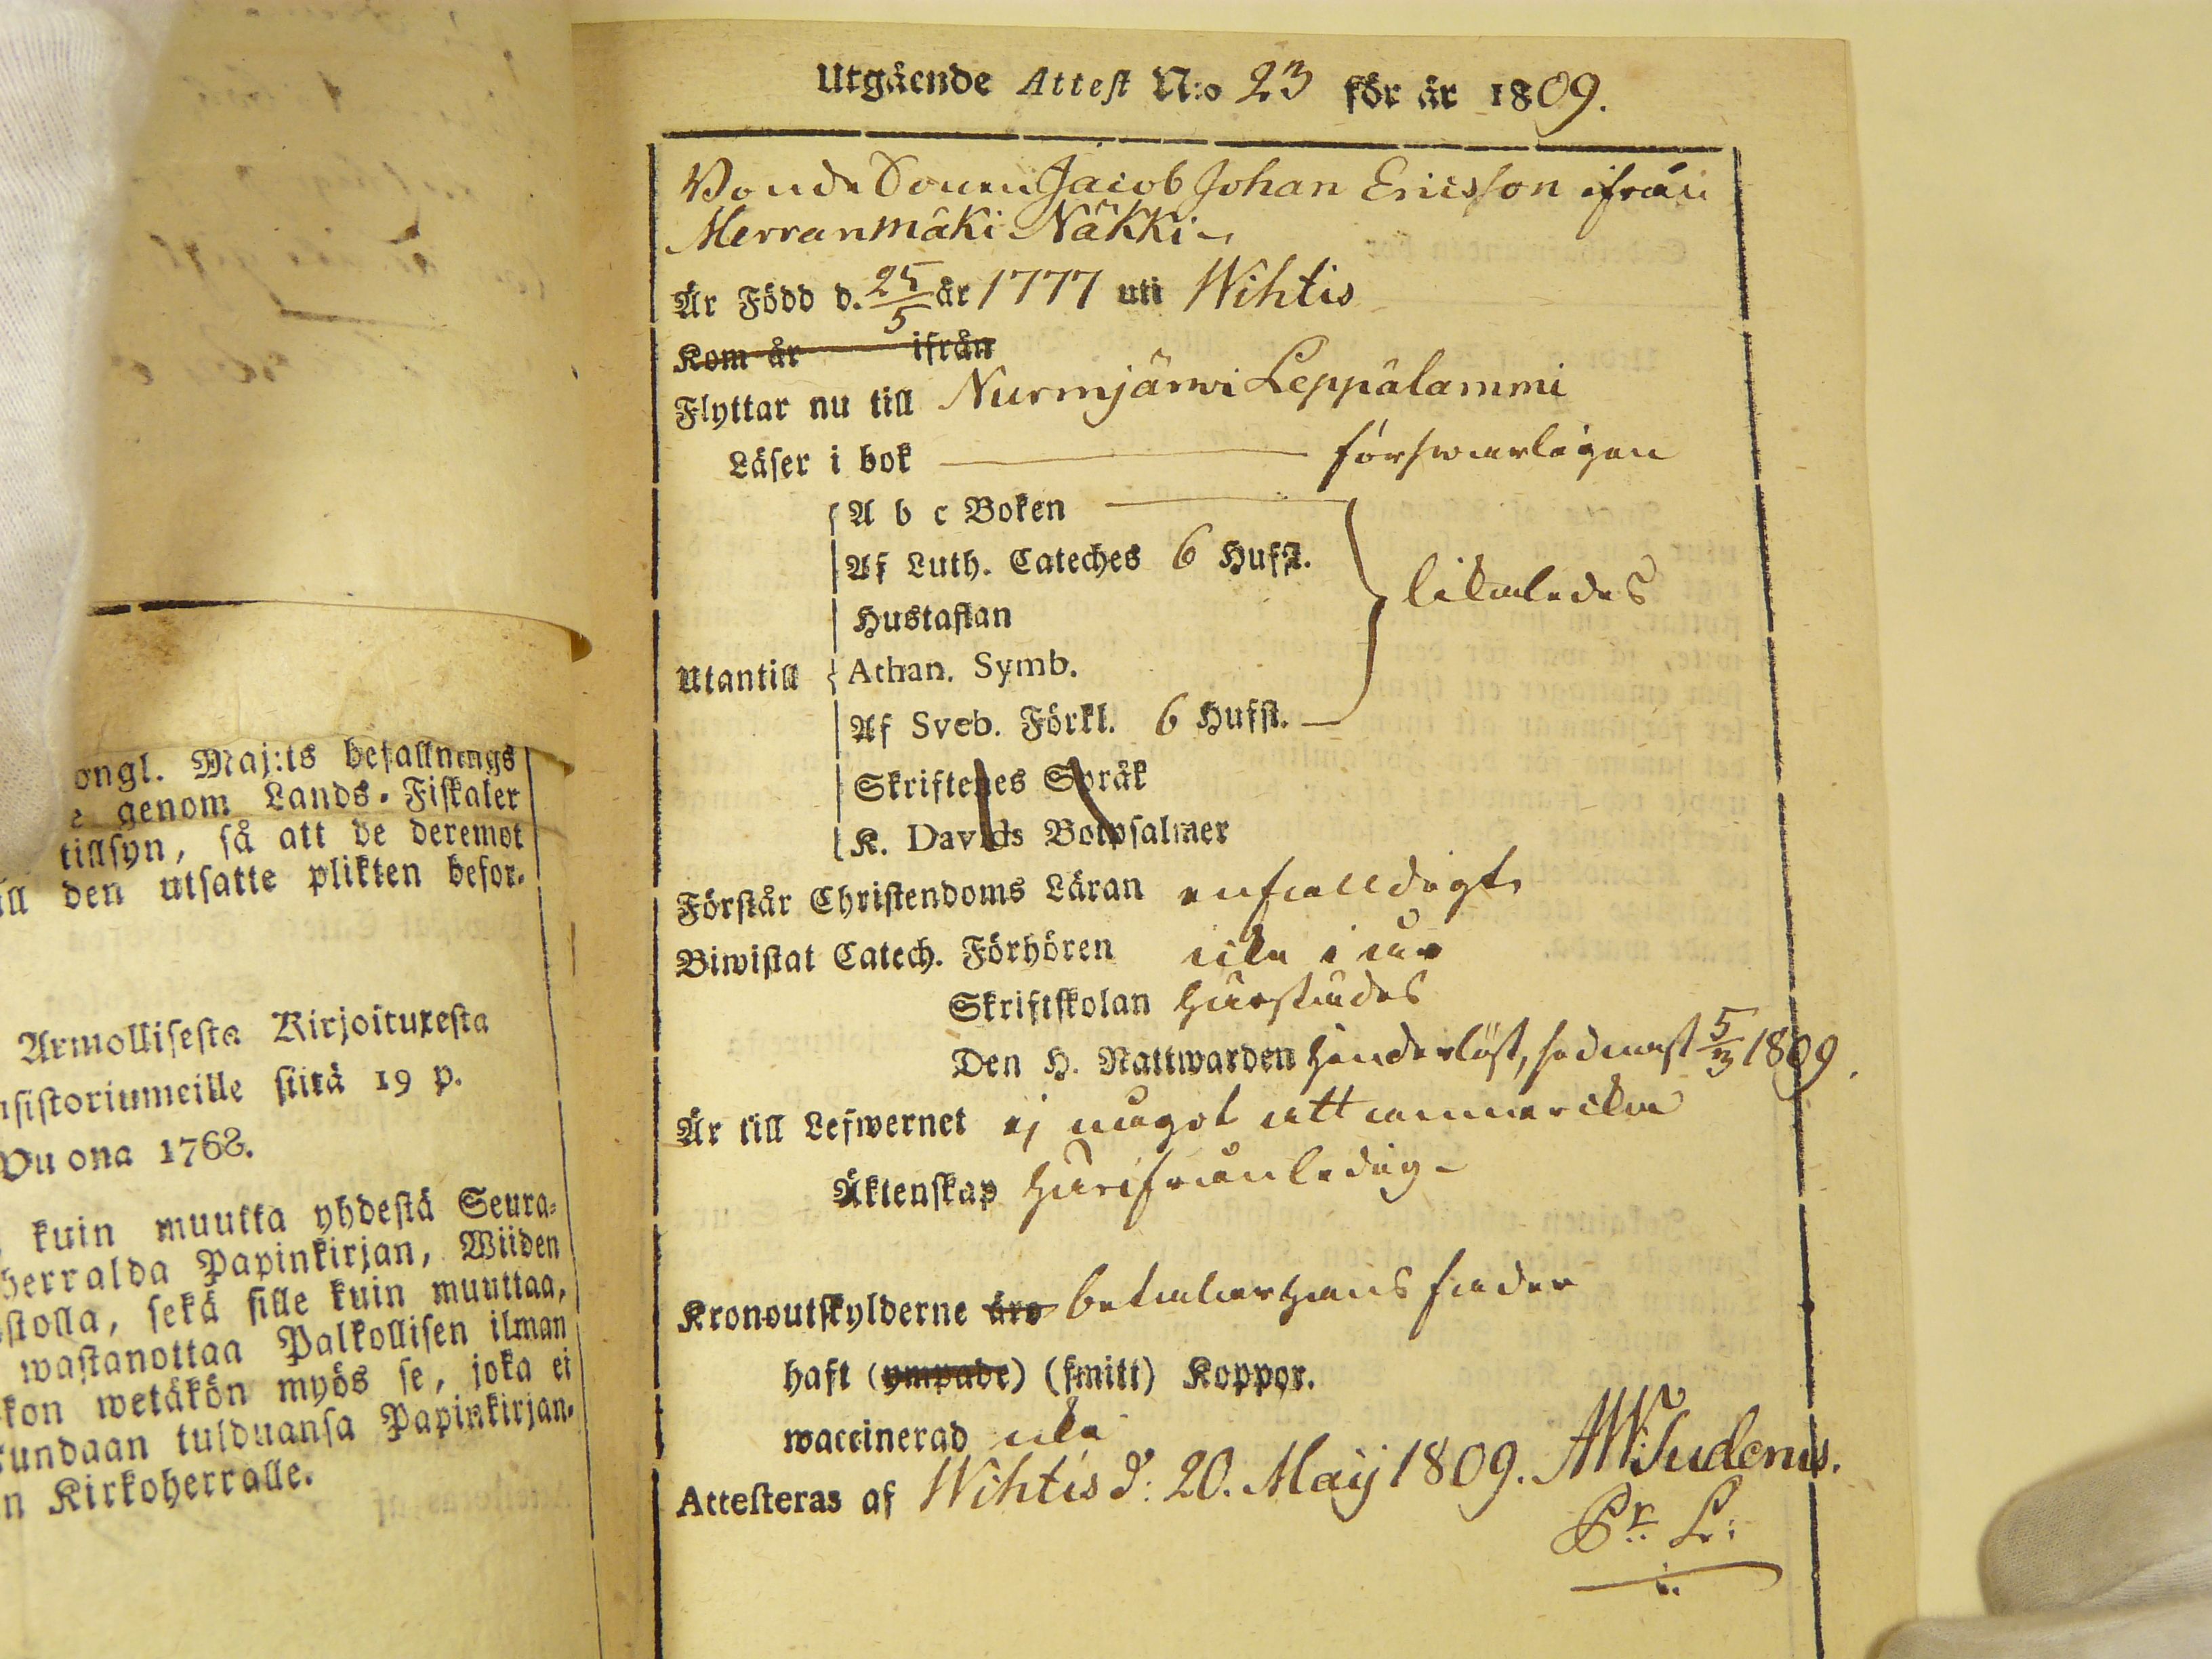 ongl. Maj:ts befallnings
genom Lands-Fiskaler
tillsyn, så att de deremot
ill den utsatte plikten befor-
Armollisesta Kirjoituxesta
nsistoriumeille siitä 19 p.
Vuona 1768.
kuin muutta yhdestä Seura-
herralda Papinkirjan, Wiiden
stolla, sekä sille kuin muuttaa,
wastanottaa Palkollisen ilman
kon wetäkön myös se, joka ei
kundaan tulduansa Papinkirjan-
n Kirkoherralle.
Utgående Attest N:o 23 för år 1809.
Bonde Sonen Jacob Johan Ericsson ifrån
Merranmäki Näkki
Är Född d. 25/5 år 1777 uti Wihtis
Kom år ifrån
Flyttar nu till Nurmjärwi Leppälammi
Läser i bok förswarligen
A b c Boken
Af Luth. Cateches 6 Hufst.
likaledes
Hustaflan
Utantill Athan. Symb.
Af Sveb. Förkl. 6 Hufst.
Skriftenes Språk
K. Davids Botpsalmer
Förstår Christendoms Läran enfalldigt
Biwistat Catech. Förhören icke i år
Skriftskolan härstädes
Den H. Nattwarden hinderlöst, sednast 5/3 1809.
Är till Lefwernet ej något att anmärka
Äktenskap härifrån ledig
Kronoutskylderne äro betalar hans fader
haft (ympade) (smitt) Koppor.
waccinerad icke
Attesteras af Wihtis d: 20. Maij 1809. AWSudenius.
Pr. L: